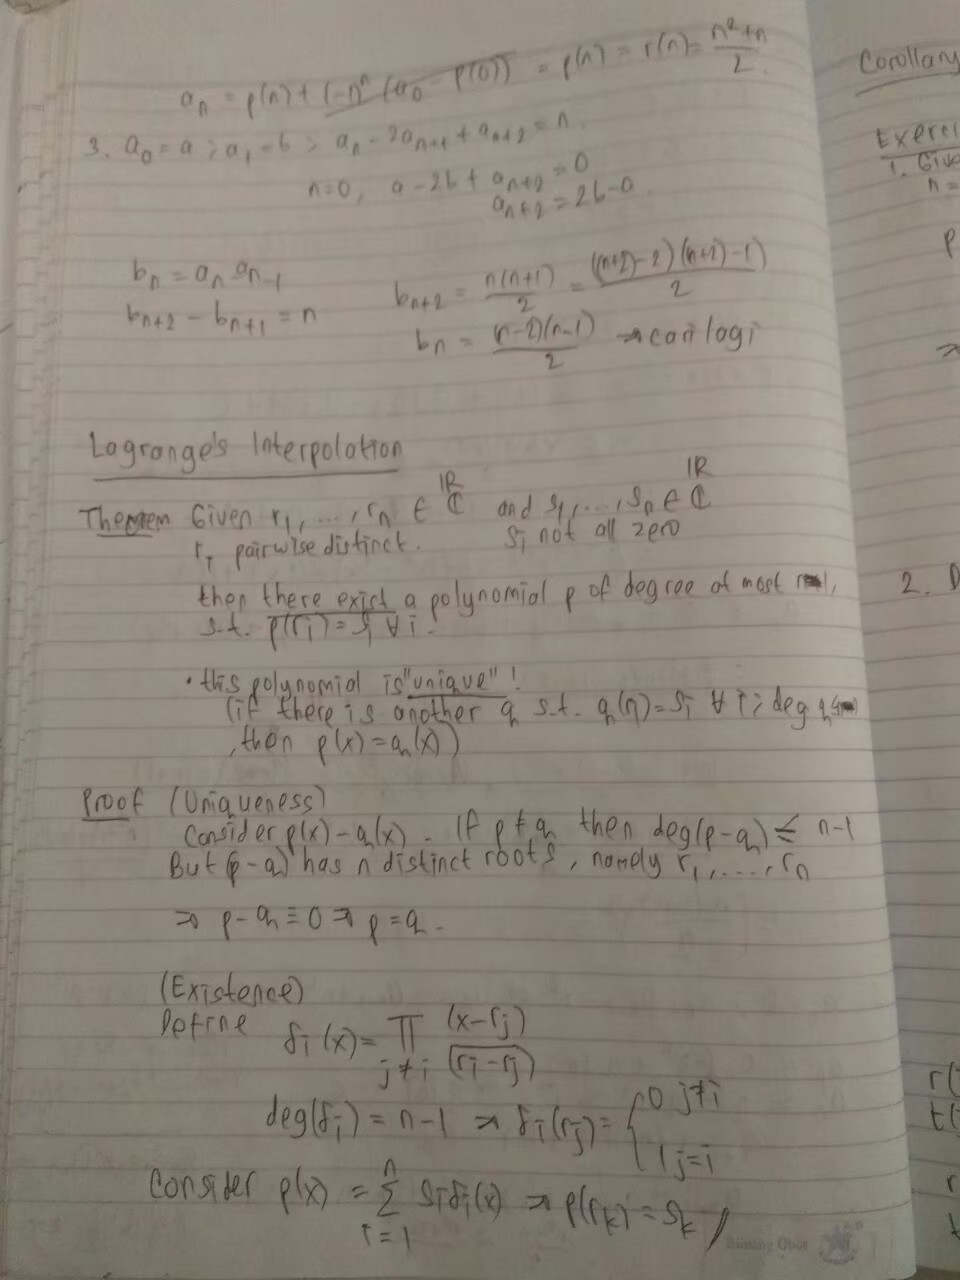 aₙ = p(n) + (-1)ⁿ (a₀ - p(0)) = p(n) = r(n) = (n²+n)/2
3. a₀ = a ; a₁ = b ; aₙ - 2aₙ₊₁ + aₙ₊₂ = n.
n=0, a - 2b + aₙ₊₂ = 0
aₙ₊₂ = 2b - a
bₙ = aₙ aₙ₋₁
bₙ₊₂ - bₙ₊₁ = n
bₙ₊₂ = n(n+1)/2 = ((n+2)-2)((n+2)-1)/2
bₙ = (n-2)(n-1)/2 → cari lagi
Lagrange's Interpolation
Theorem Given r₁, ..., rₙ ∈ ℂ ℝ and s₁, ..., sₙ ∈ ℂ ℝ
rᵢ pairwise distinct. sᵢ not all zero
then there exist a polynomial p of degree at most n-1,
s.t. p(rᵢ) = sᵢ ∀ i.
• this polynomial is "unique" !
(if there is another q s.t. q(rᵢ) = sᵢ ∀ i ; deg q
, then p(x) = q(x))
Proof (Uniqueness)
Consider p(x) - q(x). If p ≠ q then deg(p-q) ≤ n-1
But (p-q) has n distinct roots, namely r₁, ..., rₙ
⇒ p - q ≡ 0 ⇒ p = q.
(Existence)
Define δᵢ(x) = ∏ j≠i (x-rⱼ)/(rᵢ-rⱼ)
deg(δᵢ) = n-1 ⇒ δᵢ(rⱼ) = { 0 j≠i
1 j=i
Consider p(x) = Σ i=1 n sᵢδᵢ(x) ⇒ p(rₖ) = sₖ //
Bintang Obor
Corollary
1.
n=
p
⇒
2.
r(
t(
r
t